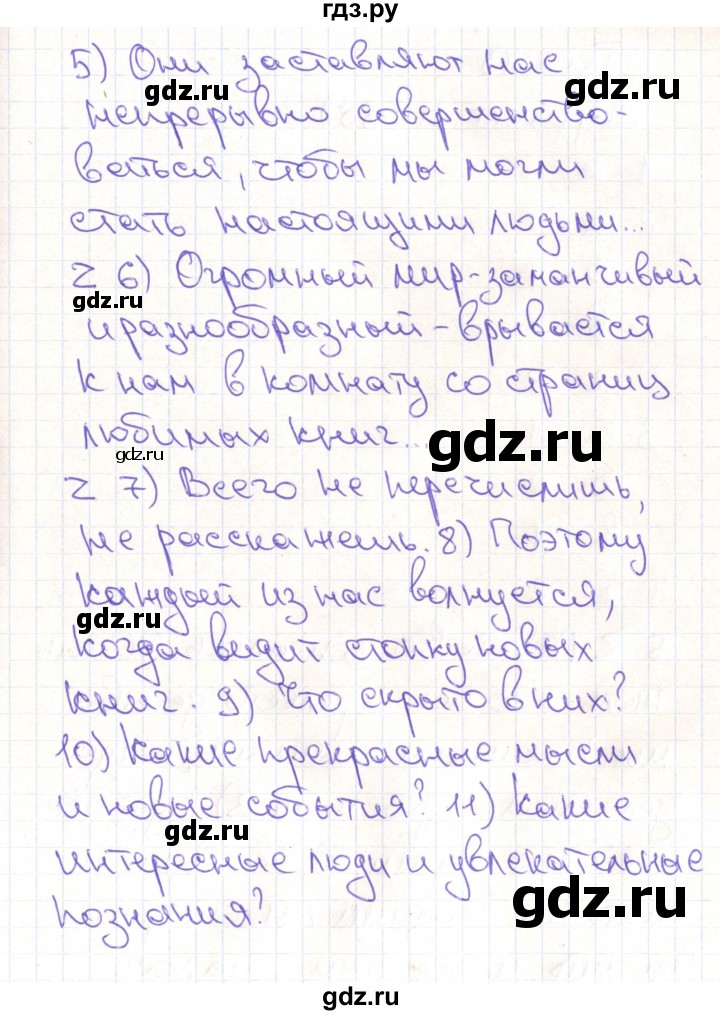 гдз.ру
5) Они заставляют нас
gdz.ru
gdz.ru
непрерывно совершенство-
ваться, чтобы мы могли
стать настоящими людьми...
Z 6) Огромный мир-заманчивый
gdz.ru
и разнообразный-врывается
к нам в комнату со страниц
любимых книг...
gdz.ru
gdz.ru
Z 7) Всего не перечислишь,
не расскажешь. 8) Поэтому
каждый из нас волнуется,
gdz.ru
когда видит стопку новых
книг. 9) Что скрыто в них?
10) Какие прекрасные мысли
и новые события? 11) Какие
gdz.ru
интересные люди и увлекательные
познания?
gdz.ru
gdz.ru